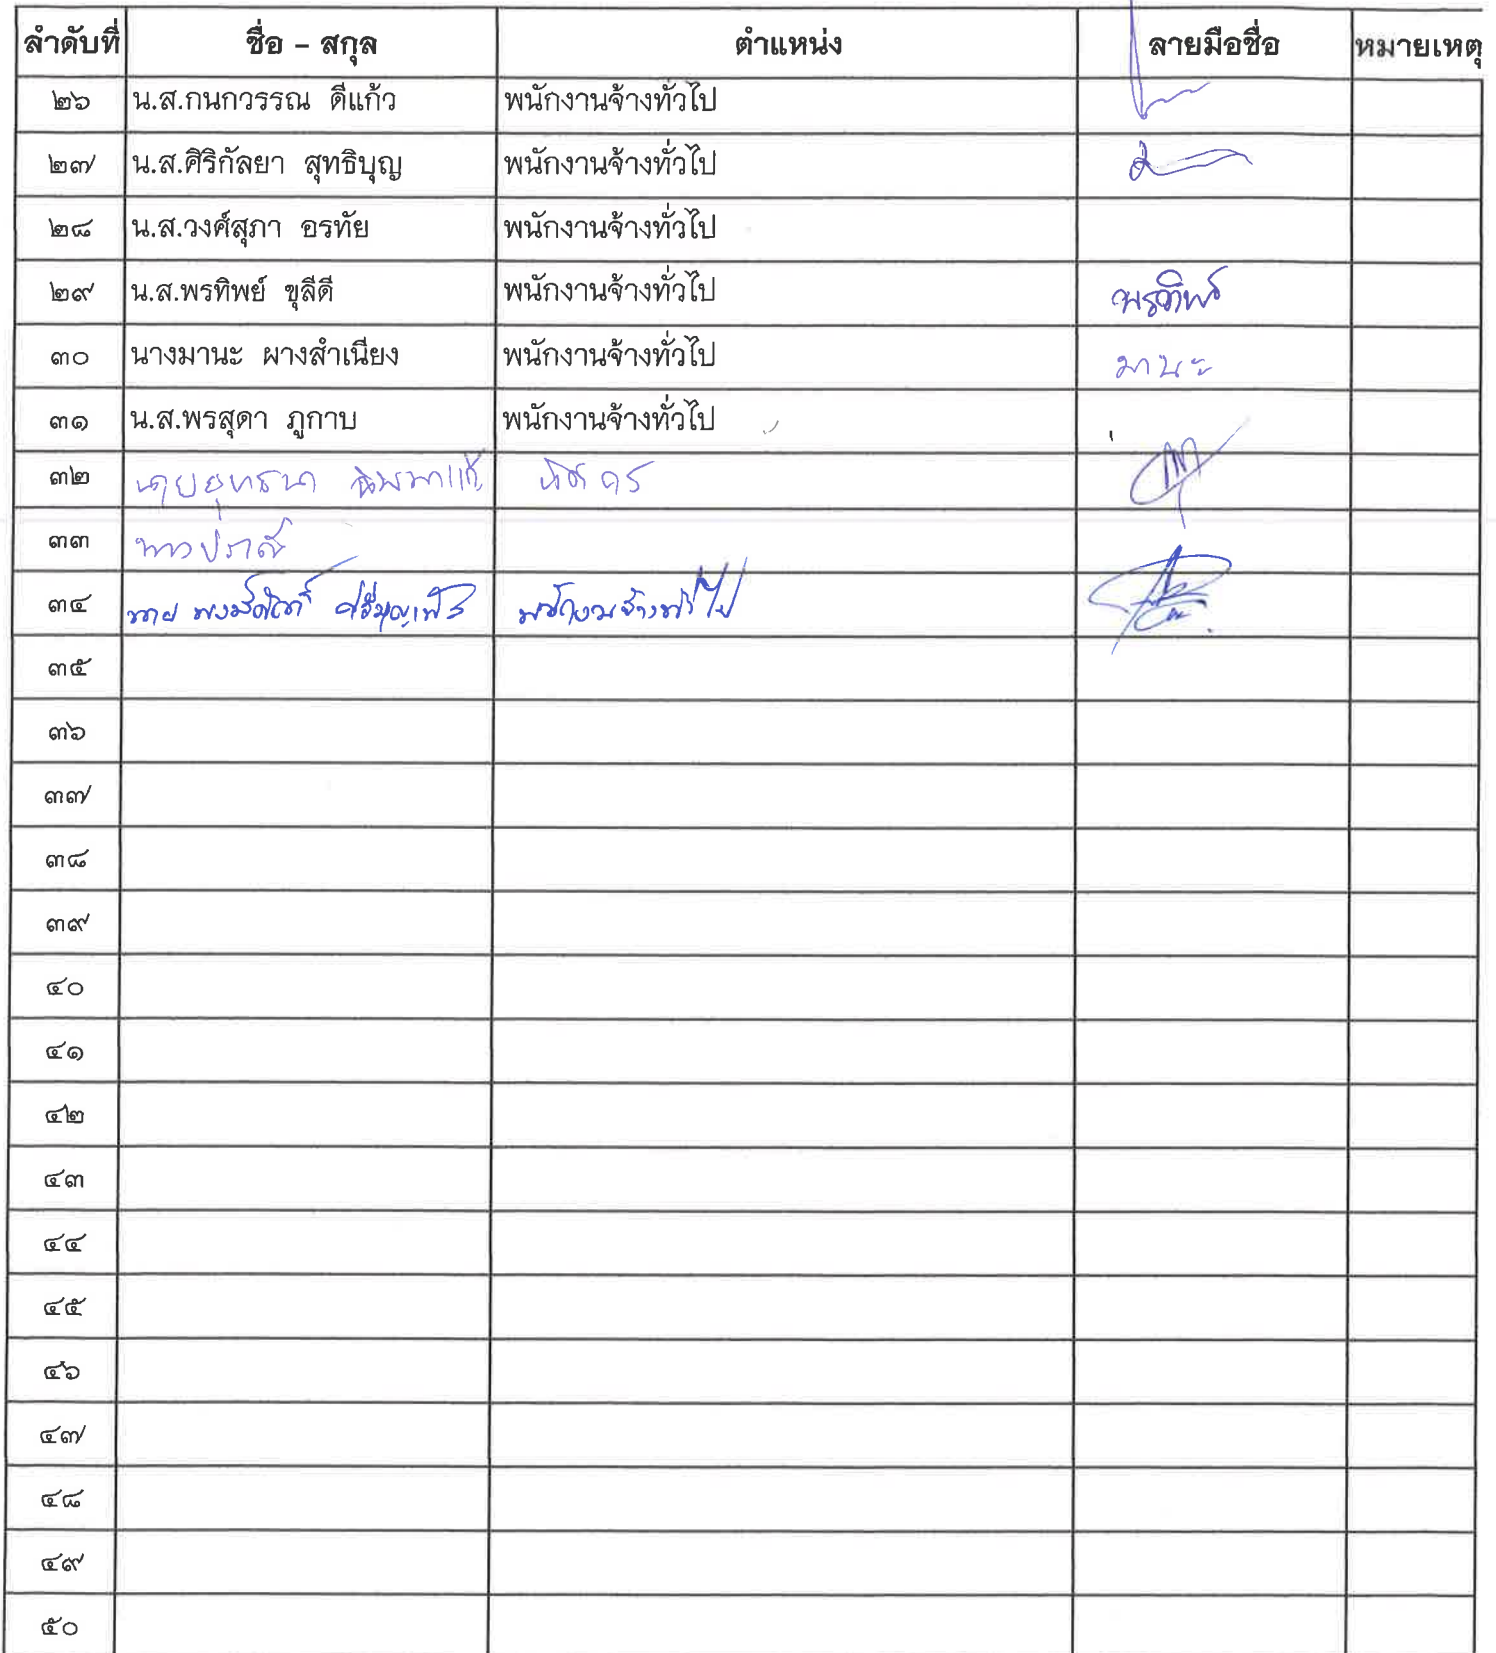 ลำดับที่ ชื่อ - สกุล ตำแหน่ง ลายมือชื่อ หมายเหตุ
๒๖ น.ส.กนกวรรณ ดีแก้ว พนักงานจ้างทั่วไป
๒๗ น.ส.ศิริกัลยา สุทธิบุญ พนักงานจ้างทั่วไป
๒๘ น.ส.วงศ์สุภา อรทัย พนักงานจ้างทั่วไป
๒๙ น.ส.พรทิพย์ ขุลีดี พนักงานจ้างทั่วไป พรทิพย์
๓๐ นางมานะ ผางสำเนียง พนักงานจ้างทั่วไป มานะ
๓๑ น.ส.พรสุดา ภูกาบ พนักงานจ้างทั่วไป
๓๒ นายยุทธนา
๓๓
๓๔ นาย พนักงานจ้างทั่วไป
๓๕
๓๖
๓๗
๓๘
๓๙
๔๐
๔๑
๔๒
๔๓
๔๔
๔๕
๔๖
๔๗
๔๘
๔๙
๕๐